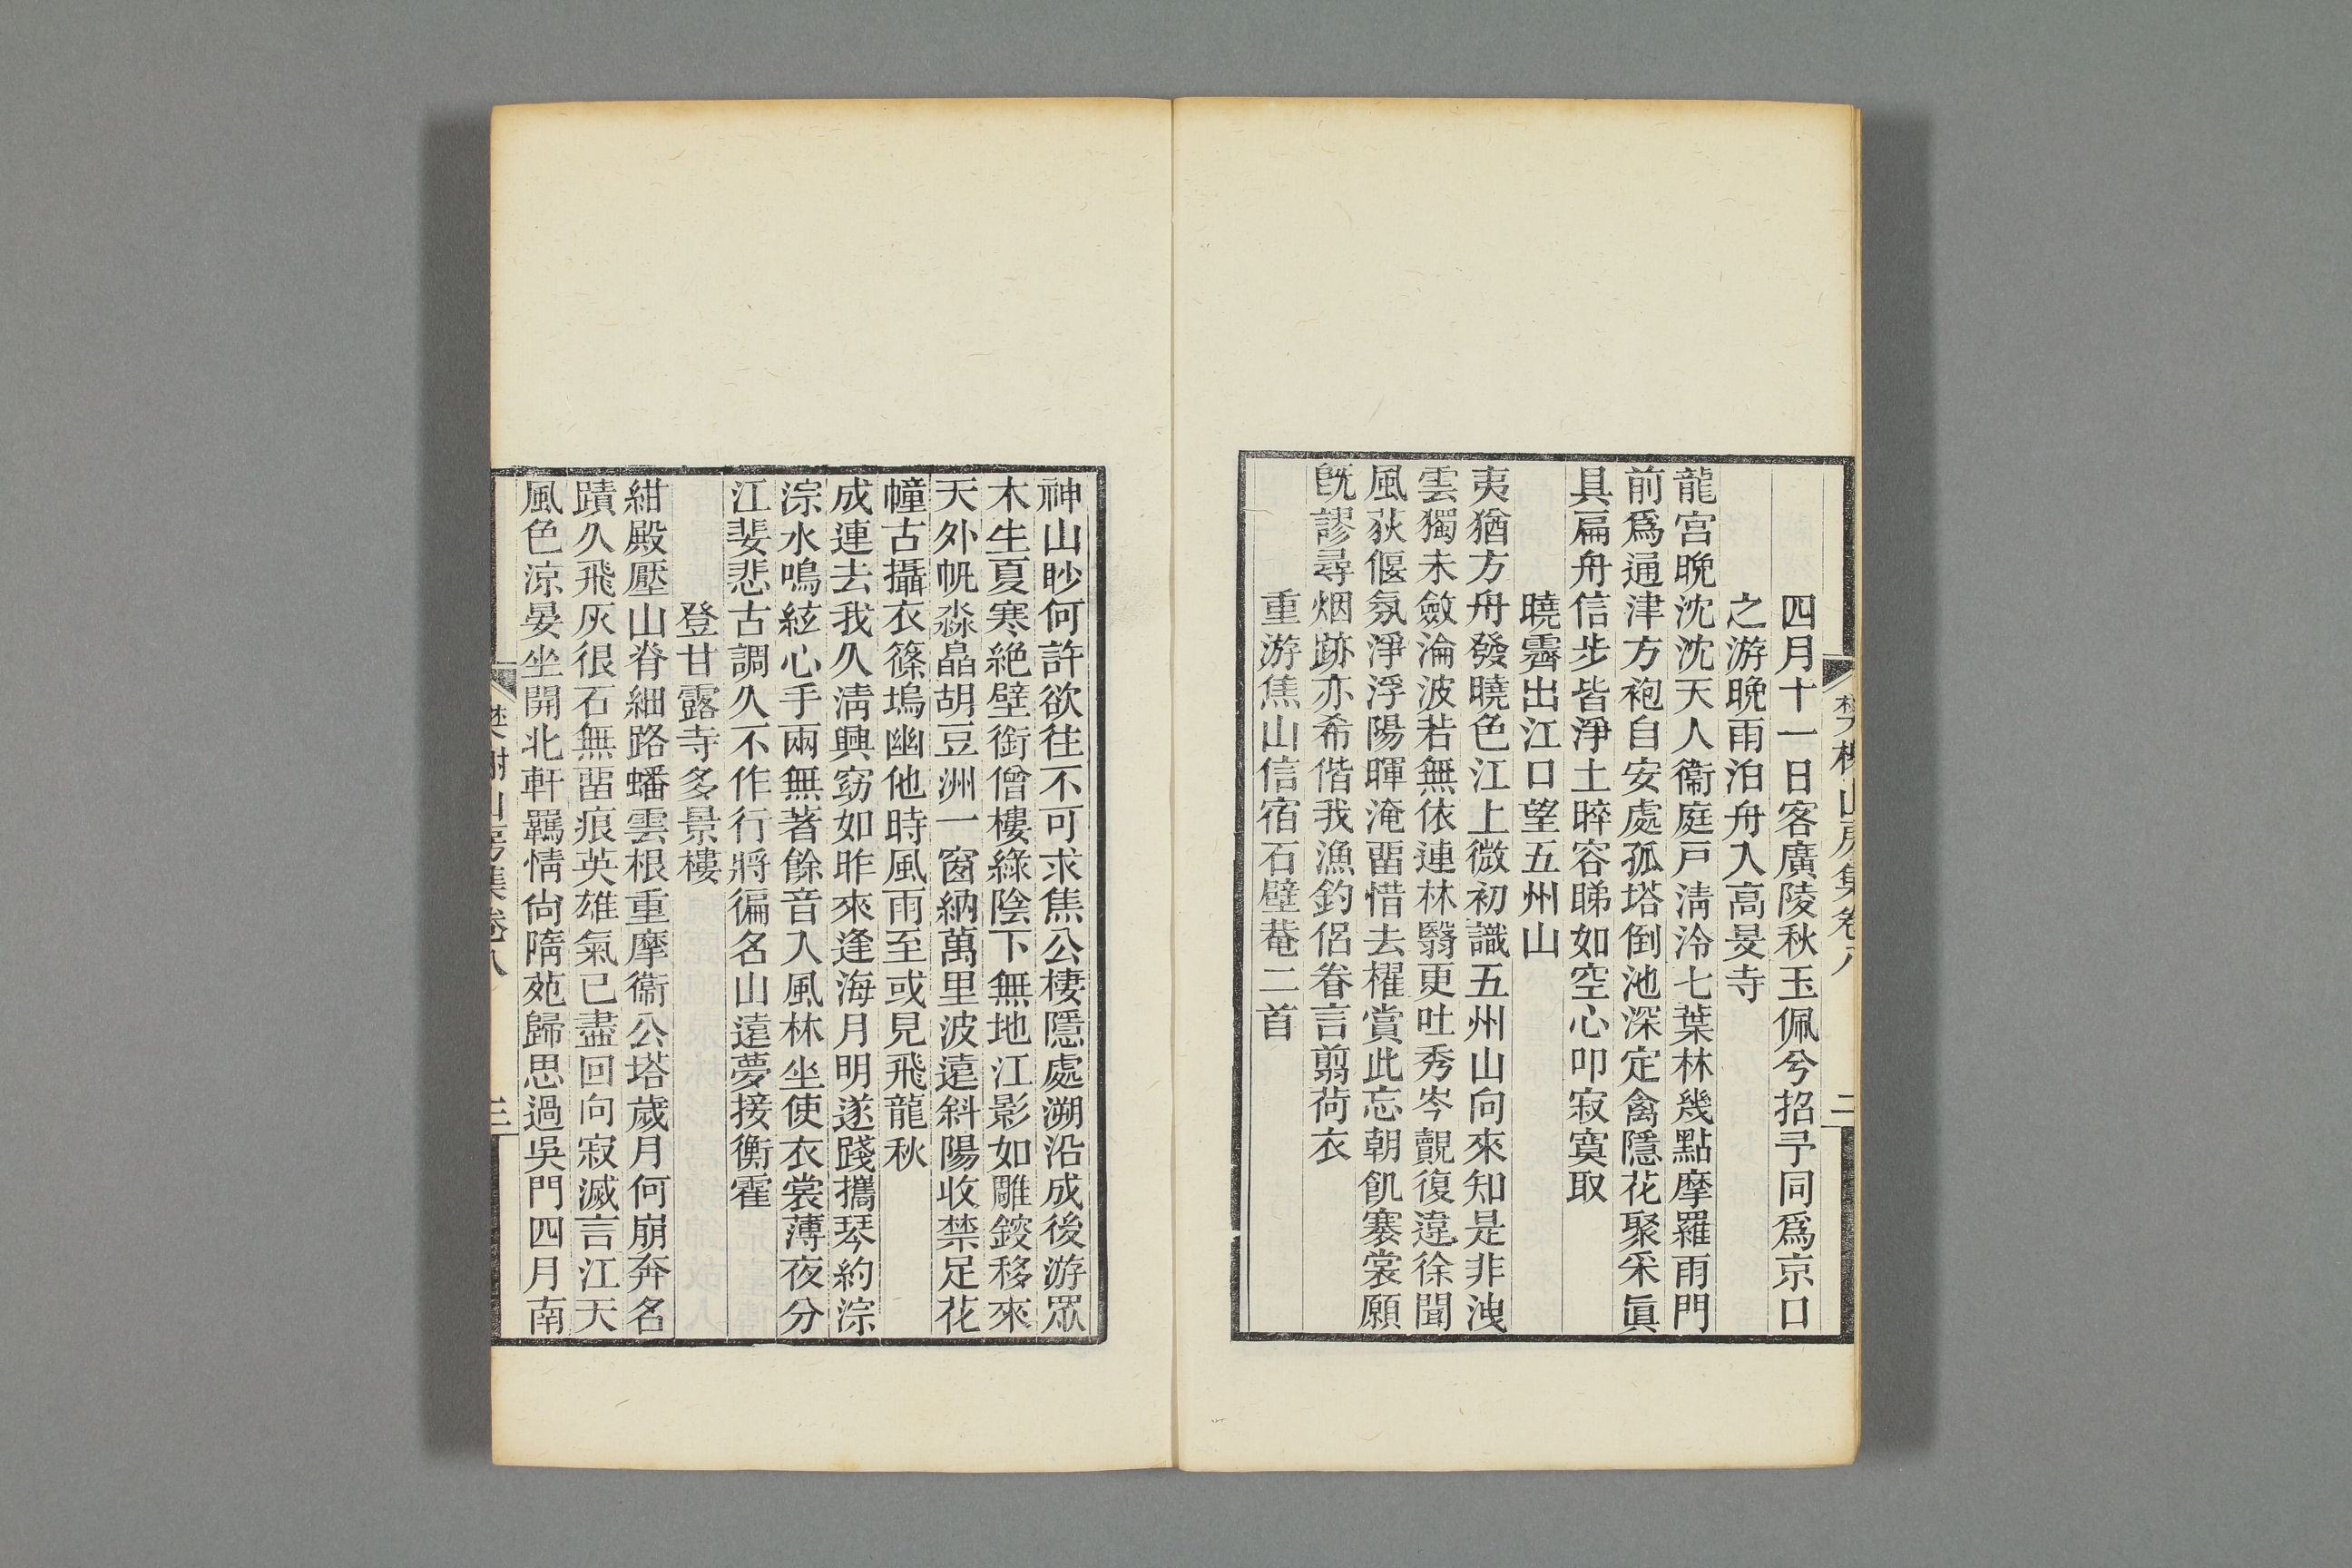 四月十一日客廣陵秋玉佩兮招予同爲京口
之游晚雨泊舟入高旻寺
龍宮晚沈沈天人衞庭戸淸泠七葉林幾點摩羅雨門
前爲通津方袍自安處孤塔倒池深定禽隱花聚采眞
具扁舟信步皆淨土睟容睇如空心叩寂寞取
曉霽出江口望五州山
夷猶方舟發曉色江上微初識五州山向來知是非洩
雲獨未斂淪波若無依連林翳更吐秀岑覿復違徐聞
風荻偃氛淨浮陽暉淹畱惜去櫂賞此忘朝飢褰裳願
旣謬尋烟跡亦希偕我漁釣侶眷言翦荷衣
重游焦山信宿石壁菴二首
神山眇何許欲往不可求焦公棲隱處溯沿成後游眾
木生夏寒絶壁銜僧樓綠陰下無地江影如雕鎪移來
天外帆淼畾胡豆洲一窗納萬里波遠斜陽收禁足花
幢古攝衣篠塢幽他時風雨至或見飛龍秋
成連去我久淸興窈如昨來逢海月明遂踐攜琴約淙
淙水鳴絃心手兩無著餘音入風林坐使衣裳薄夜分
江婓悲古調久不作行將徧名山遠夢接衡霍
登甘露寺多景樓
紺殿壓山脊細路蟠雲根重摩衞公塔歲月何崩奔名
蹟久飛灰很石無畱痕英雄氣已盡回向寂滅言江天
風色涼晏坐開北軒羈情尙隋苑歸思過吳門四月南
樊榭山房集卷八
三